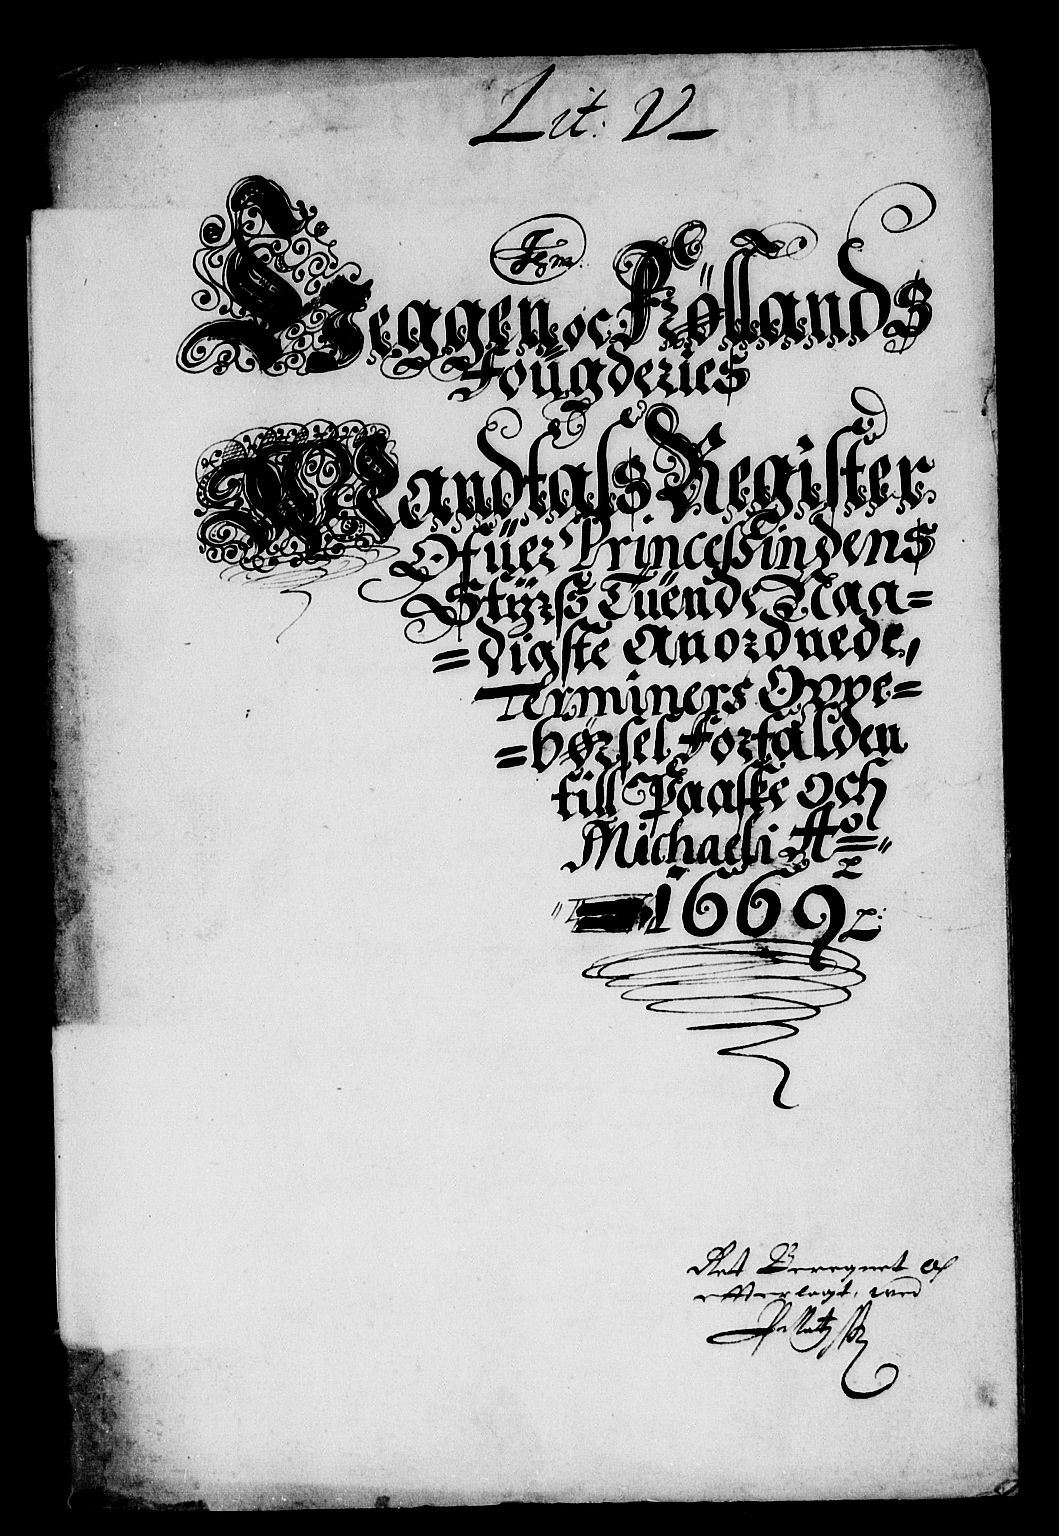 Lit: V
Heggen oc Frøllands
Foügderies
Mandtals Register
Ofüer Princessindens
Styrss Tüende Naa=
=digste Anordnede,
Terminers Oppe=
=børsel Forfalden
till Paaske och
Michaeli Ao
1669
Ret Beregnet och
efterlagt, wed